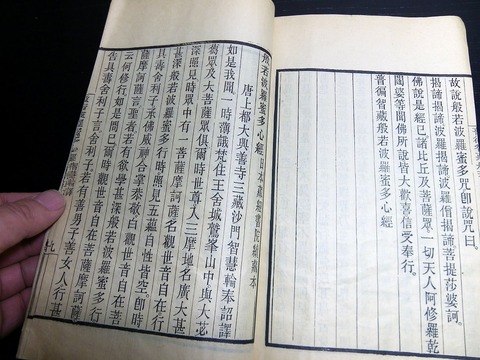 故說般若波羅蜜多咒卽說咒曰。
揭諦揭諦波羅揭諦波羅僧揭諦菩提莎婆訶。
佛說是經已諸比丘及菩薩衆一切天人阿修羅乾
闥婆等聞佛所說皆大歡喜信受奉行。
普徧智藏般若波羅蜜多心經
般若波羅蜜多心經日本藏經書院續藏本
唐上都大興善寺三藏沙門智慧輪奉詔譯
如是我聞一時薄誐梵住王舍城鷲峯山中與大苾
蒭衆及大菩薩衆俱爾時世尊入三摩地名廣大甚
深照見時衆中有一菩薩摩訶薩名觀世音自在行
甚深般若波羅蜜多行時照見五蘊自性皆空。卽時
具壽舍利子承佛威神合掌恭敬白觀世音自在菩
薩摩訶薩言聖者若有欲學甚深般若波羅蜜多行
云何修行如是問已爾時觀世音自在菩薩摩訶薩
告具壽舍利子言舍利子若有善男子善女人行甚